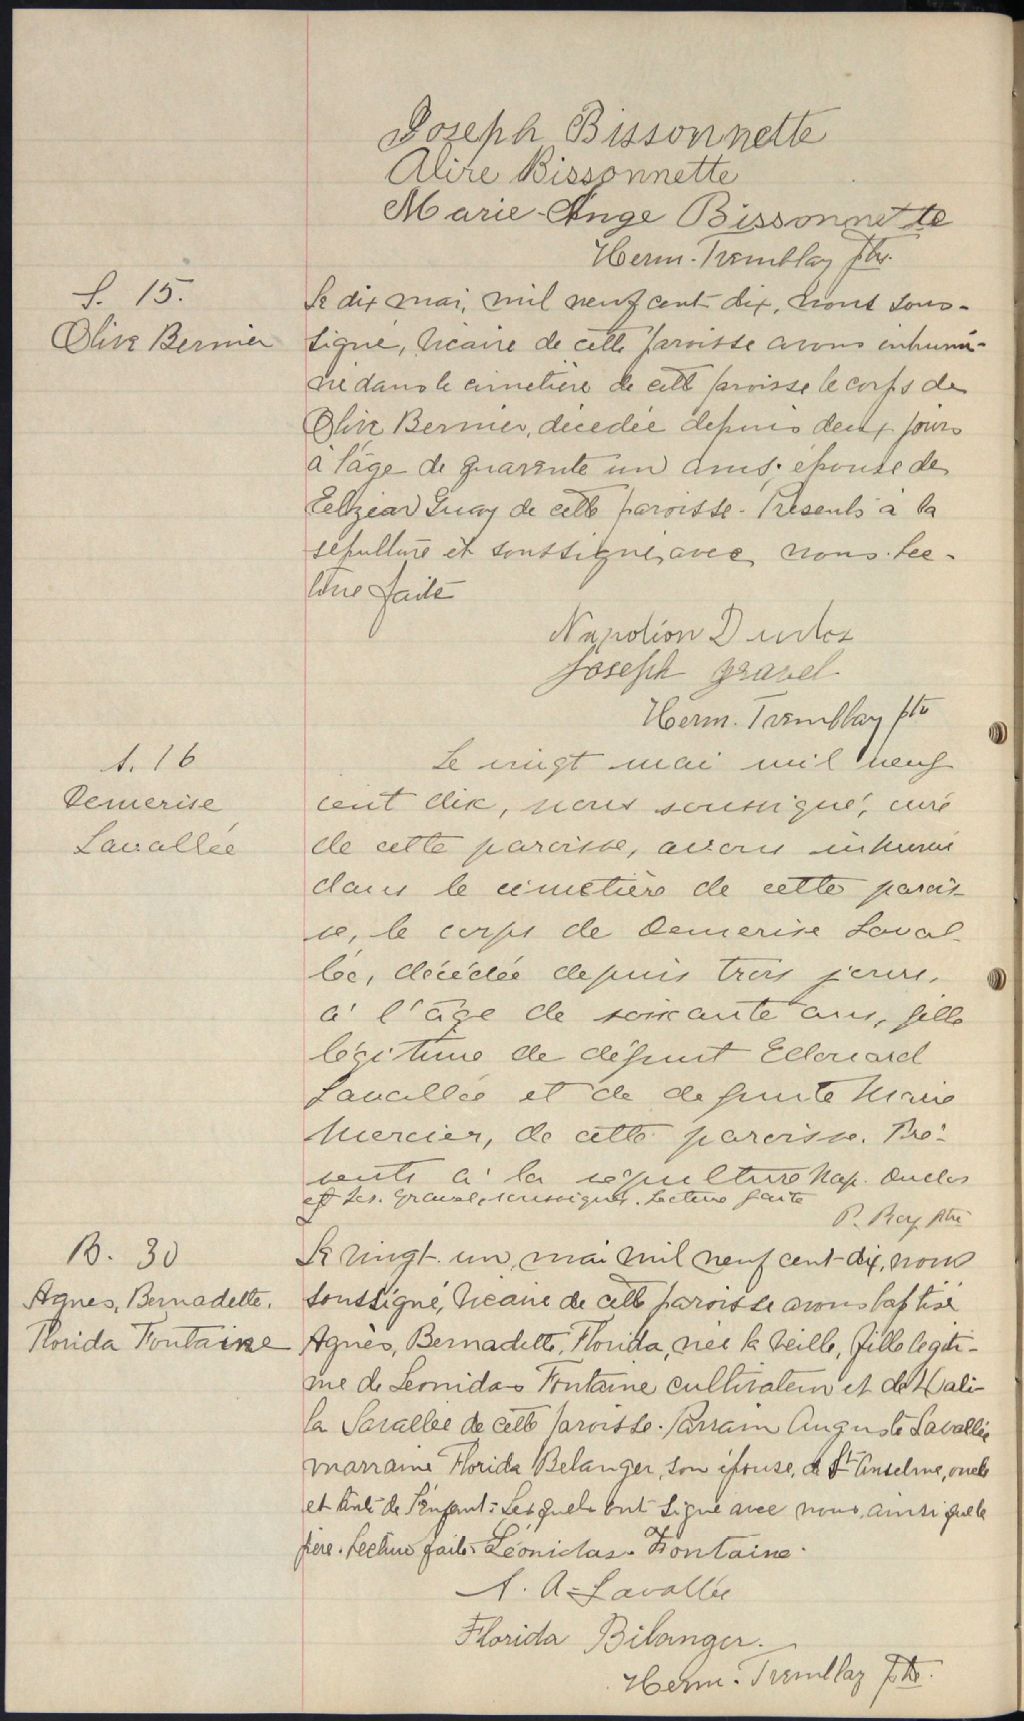 Joseph Bissonnette
Alire Bissonnette
Marie-Ange Bissonnette
Herm. Tremblay Ptre.
S. 15.
Olive Bernier
Le dix mai, mil neuf cent dix, nous sous-
signé, Vicaire de cette paroisse avons inhumé-
né dans le cimetière de cette paroisse le corps de
Olive Bernier, décédée depuis deux jours
à l'âge de quarante un ans, épouse de
Eelzéar Guay de cette paroisse. Présents à la
sépulture et soussignés avec nous. Lec-
ture faite
Napoléon Duclos
Joseph Gravel
Herm. Tremblay ptre
S. 16
Demerise
Lavallée
Le vingt mai mil neuf
cent dix, nous soussigné, curé
de cette paroisse, avons inhumé
dans le cimetière de cette parois-
se, le corps de Demerise Laval-
lée, décédée depuis trois jours,
à l'âge de soixante ans, fille
légitime de défunt Edouard
Lavallée et de defunte Marie
Mercier, de cette paroisse. Pré-
sents à la sépulture Nap. Duclos
et Jos. Gravel, soussignés. Lecture faite
P. Roy Ptre
B. 30
Agnes, Bernadette,
Florida Fontaine
Le vingt-un, mai mil neuf cent-dix, nous
soussigné, Vicaire de cette paroisse avons baptisé
Agnès, Bernadette, Florida, née la veille, fille légiti-
me de Leonidas Fontaine cultivateur et de Hali-
la Lavallée de cette paroisse. Parrain Auguste Lavallée
marraine Florida Belanger, son épouse, de St Anselme, oncle
et tante de l'enfant. Lesquels ont signé avec nous, ainsi que le
père. Lecture faite. Léonidas. Fontaine.
S. A. Lavallée
Florida Bélanger.
Herm. Tremblay Ptre.